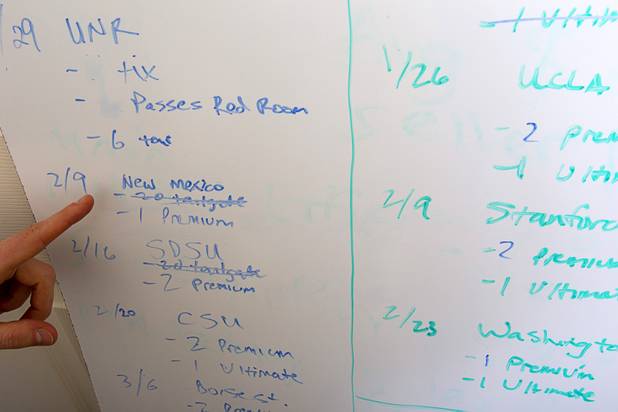 /29 UNR
- tix
- Passes Red Room
- 6
2/9 New Mexico
- 20 tailgate
- 1 Premium
2/16 SDSU
- 20 tailgate
- 2 Premium
2/20 CSU
- 2 Premium
- 1 Ultimate
3/6 Boise st.
- 2
- 1 Ultim
1/26 UCLA
- 2 Prem
- 1 Ulti
2/9 Stanford
- 2 Premium
- 1 Ultimate
2/23 Washingto
- 1 Premium
- 1 Ultimate